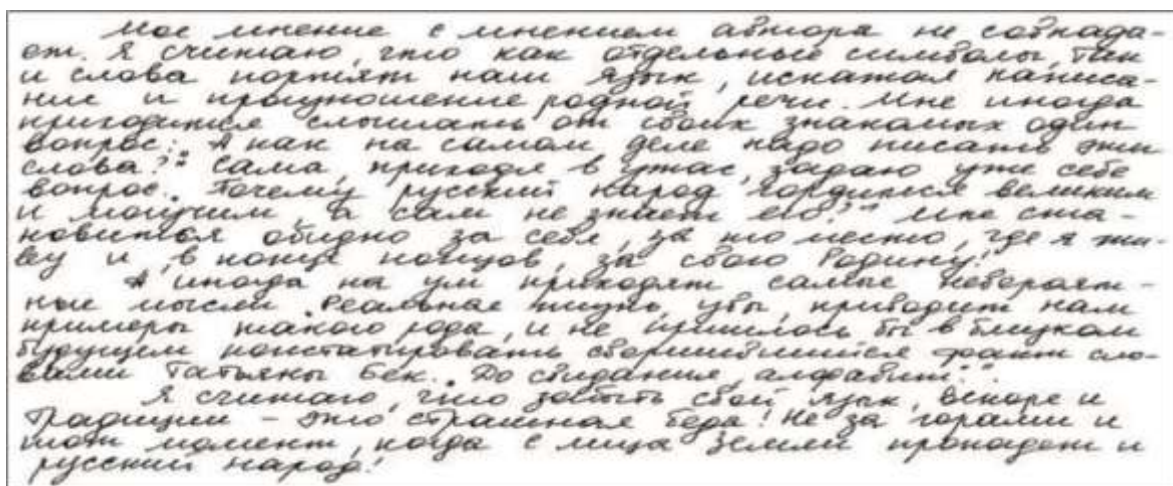 Мое мнение с мнением автора не совпада-
ет. Я считаю, что как отдельные символы, так
и слова портят наш язык, искажая написа-
ние и произношение родной речи. Мне иногда
приходится слышать от своих знакомых один
вопрос: „А как на самом деле надо писать эти
слова?" Сама, приходя в ужас, задаю уже себе
вопрос: „Почему русский народ гордится великим
и могучим, а сам не знает его?" Мне ста-
новиться обидно за себя, за то место, где я жи-
ву и, в конце концов, за свою Родину!
А иногда на ум приходят самые невероят-
ные мысли. Реальная жизнь, увы, приводит нам
примеры такого рода, и не пришлось бы в близком
будущем констатировать свершившийся факт сло-
вами Татьяны Бек: „До свидания, алфавит!".
Я считаю, что забыть свой язык, вскоре и
традиции – это страшная беда! Не за горами и
тот момент, когда с лица земли пропадет и
русский народ!